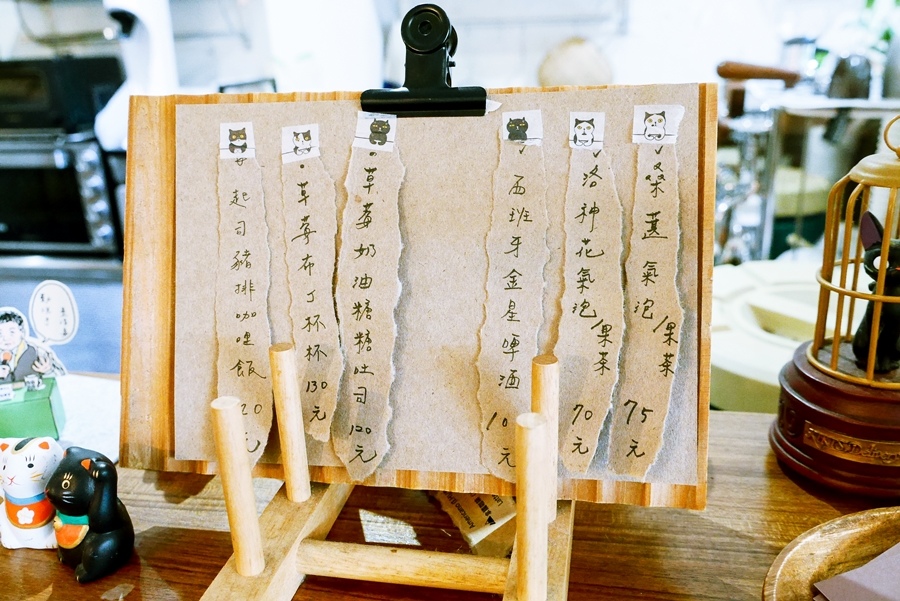 桑葚氣泡/果茶 75元
洛神花氣泡/果茶 70元
西班牙金星啤酒 元
草莓奶油糖糖吐司 120元
草莓布丁杯杯 130元
起司豬排咖哩飯 20元